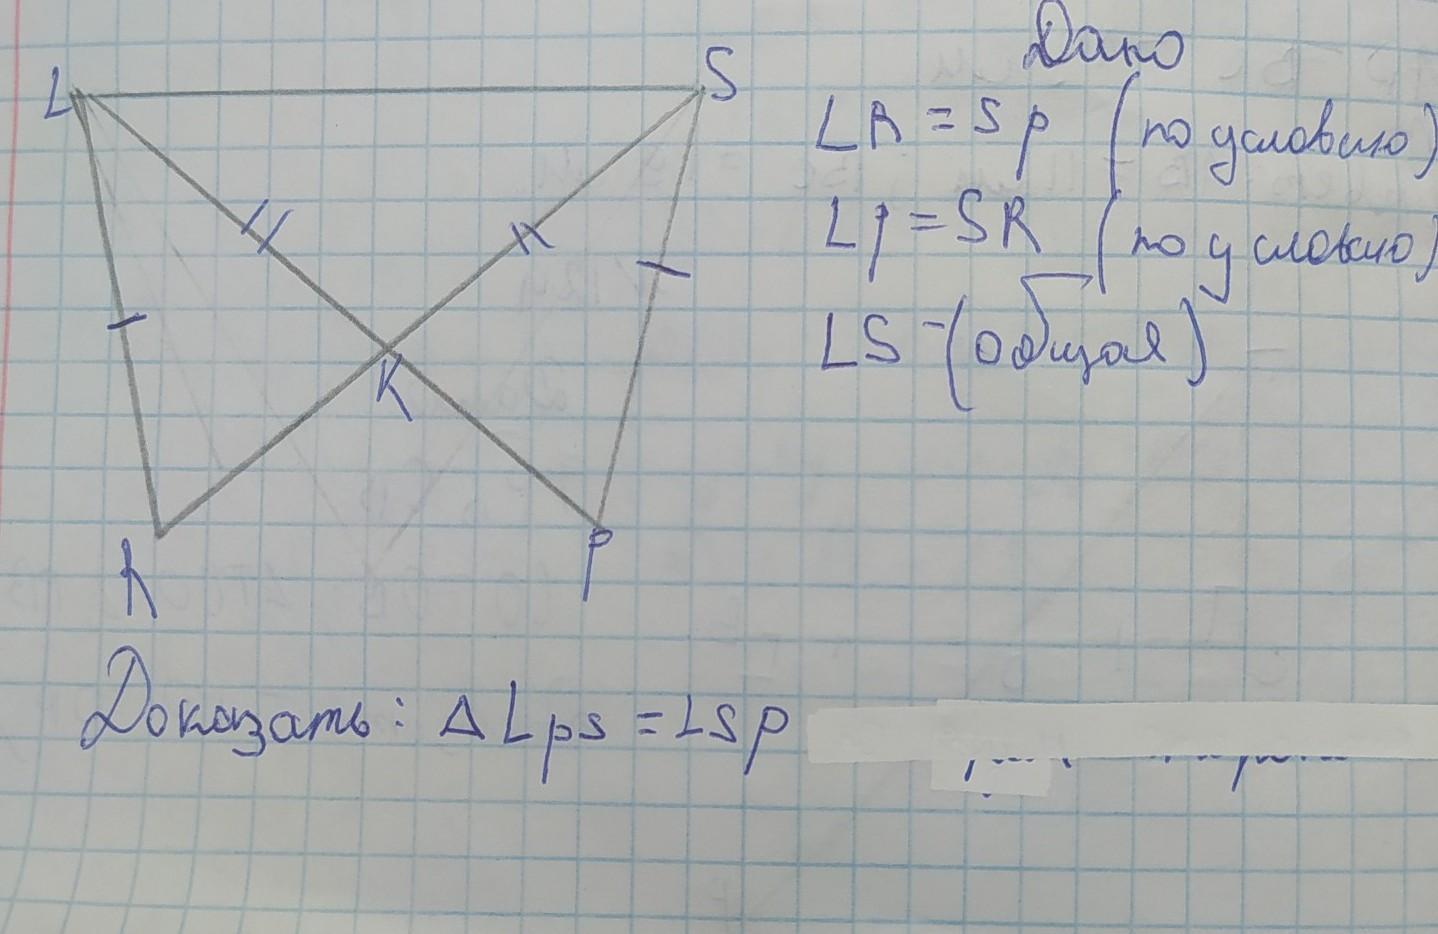 Дано
L S
LR = Sp (по условию)
Lp = SR (по условию)
LS - (общая)
K
R P
Доказать: Δ Lps = LSp